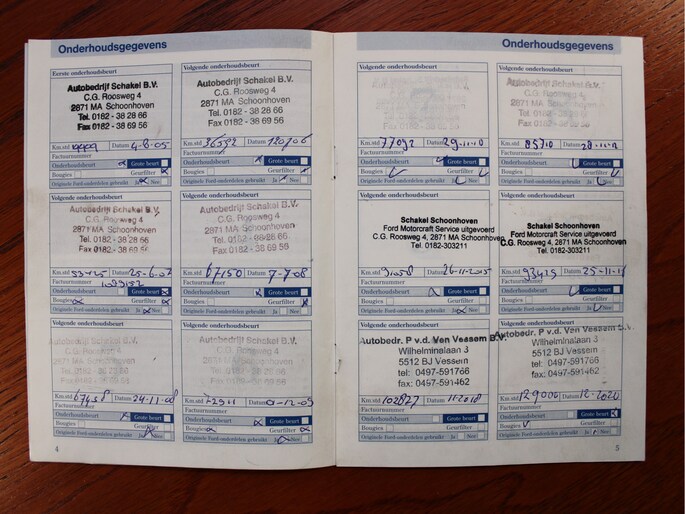 Onderhoudsgegevens
Eerste onderhoudsbeurt
Autobedrijf Schakel B.V.
C.G. Roosweg 4
2871 MA Schoonhoven
Tel. 0182 - 38 28 66
Fax 0182 - 38 69 56
Km.std Datum 4-8-05
Factuurnummer
Onderhoudsbeurt Grote beurt
Bougies Geurfilter
Originele Ford-onderdelen gebruikt Ja Nee
Volgende onderhoudsbeurt
Autobedrijf Schakel B.V.
C.G. Roosweg 4
2871 MA Schoonhoven
Tel. 0182 - 38 28 66
Fax 0182 - 38 69 56
Km.std 36592 Datum 120706
Factuurnummer
Onderhoudsbeurt Grote beurt
Bougies Geurfilter
Originele Ford-onderdelen gebruikt Ja Nee
Volgende onderhoudsbeurt
Autobedrijf Schakel B.V.
C.G. Roosweg 4
2871 MA Schoonhoven
Tel. 0182 - 38 28 66
Fax 0182 - 38 69 56
Km.std 53425 Datum 25-6-07
Factuurnummer
Onderhoudsbeurt Grote beurt
Bougies Geurfilter
Originele Ford-onderdelen gebruikt Ja Nee
Volgende onderhoudsbeurt
Autobedrijf Schakel B.V.
C.G. Roosweg 4
2871 MA Schoonhoven
Tel. 0182 - 38 28 66
Fax 0182 - 38 69 56
Km.std 67150 Datum 7-7-08
Factuurnummer
Onderhoudsbeurt Grote beurt
Bougies Geurfilter
Originele Ford-onderdelen gebruikt Ja Nee
Volgende onderhoudsbeurt
Autobedrijf Schakel B.V.
C.G. Roosweg 4
2871 MA Schoonhoven
Km.std Datum 24-11-08
Factuurnummer
Onderhoudsbeurt Grote beurt
Bougies Geurfilter
Originele Ford-onderdelen gebruikt Ja Nee
Volgende onderhoudsbeurt
Autobedrijf Schakel B.V.
C.G. Roosweg 4
2871 MA Schoonhoven
Km.std Datum 01-12-09
Factuurnummer
Onderhoudsbeurt Grote beurt
Bougies Geurfilter
Originele Ford-onderdelen gebruikt Ja Nee
4
Onderhoudsgegevens
Volgende onderhoudsbeurt
Km.std 77092 Datum 29-11-10
Factuurnummer
Onderhoudsbeurt Grote beurt
Bougies Geurfilter
Originele Ford-onderdelen gebruikt Ja Nee
Volgende onderhoudsbeurt
Autobedrijf Schakel B.V.
C.G. Roosweg 4
2871 MA Schoonhoven
Tel. 0182 - 38 28 66
Fax 0182 - 38 69 56
Km.std 85710 Datum
Factuurnummer
Onderhoudsbeurt Grote beurt
Bougies Geurfilter
Originele Ford-onderdelen gebruikt Ja Nee
Volgende onderhoudsbeurt
Schakel Schoonhoven
Ford Motorcraft Service uitgevoerd
C.G. Roosweg 4, 2871 MA Schoonhoven
Tel. 0182-303211
Km.std 91058 Datum
Factuurnummer
Onderhoudsbeurt Grote beurt
Bougies Geurfilter
Originele Ford-onderdelen gebruikt Ja Nee
Volgende onderhoudsbeurt
Schakel Schoonhoven
Ford Motorcraft Service uitgevoerd
C.G. Roosweg 4, 2871 MA Schoonhoven
Tel. 0182-303211
Km.std 93415 Datum
Factuurnummer
Onderhoudsbeurt Grote beurt
Bougies Geurfilter
Originele Ford-onderdelen gebruikt Ja Nee
Volgende onderhoudsbeurt
Autobedr. P v.d. Van Vessem B.V.
Wilhelminalaan 3
5512 BJ Vessem
tel: 0497-591766
fax: 0497-591462
Km.std 102827 Datum 11-2018
Factuurnummer
Onderhoudsbeurt Grote beurt
Bougies Geurfilter
Originele Ford-onderdelen gebruikt Ja Nee
Volgende onderhoudsbeurt
Autobedr. P v.d. Van Vessem b.v.
Wilhelminalaan 3
5512 BJ Vessem
tel: 0497-591766
fax: 0497-591462
Km.std 129000 Datum 12-2020
Factuurnummer
Onderhoudsbeurt Grote beurt
Bougies Geurfilter
Originele Ford-onderdelen gebruikt Ja Nee
5